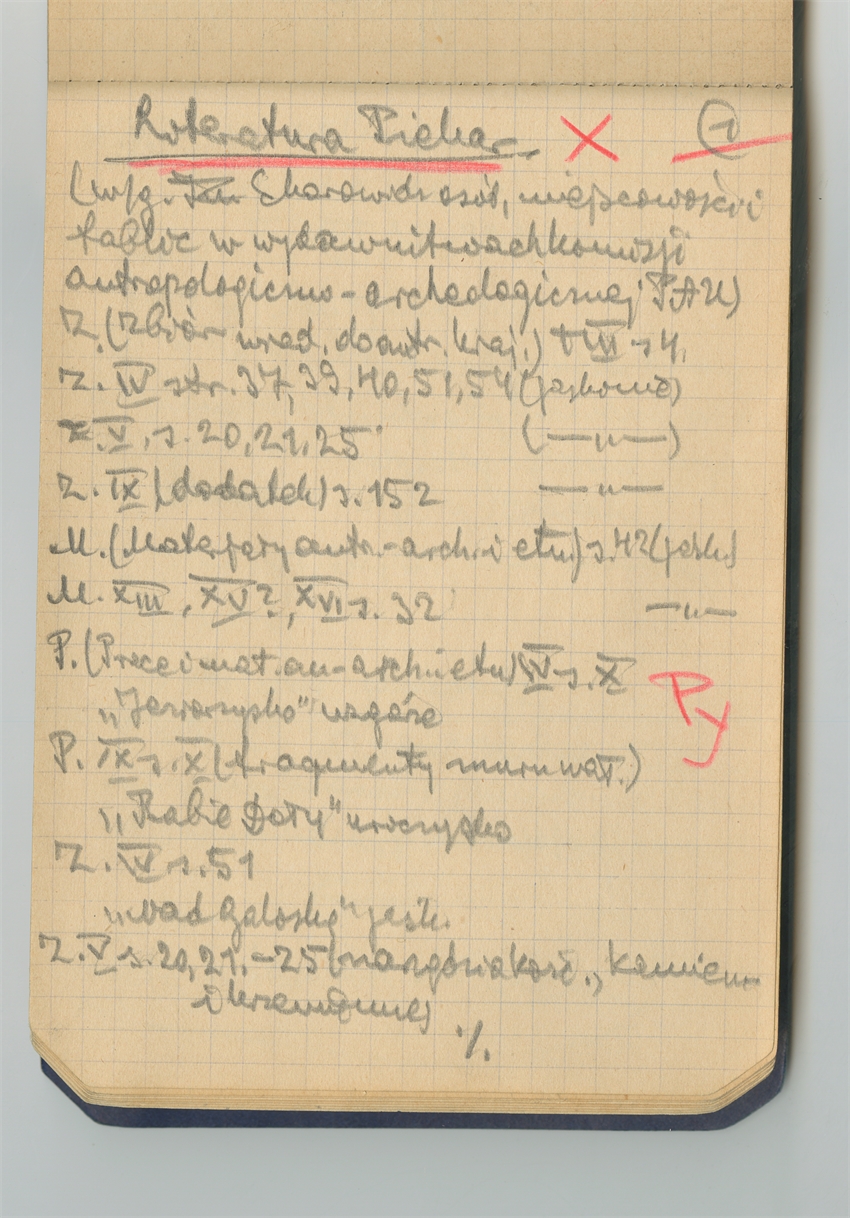 Literatura Piekar. X 1
(wg. Skorowidz osób, miejscowości i
tablic w wydawnictwach komisji
antropologiczno-archeologicznej PAU)
Z. (Zbiór wiad. do antr. kraj.) t III s 4.
Z. IV str. 37, 39, 40, 51, 54 (jaskinie)
Z. V, s. 20, 21, 25 (—„—)
Z. IX (dodatek) s. 152 —„—
M. (Materjały antr.-arch. i etn.) s. 42 (jask.)
M. XIII, XV?, XVI s. 32 —„—
P. (Prace i mat. an-arch. i etn) IV s. X
„Jeziorzysko" wzgórze
Py
P. IX s. X (fragmenty muru wał.)
„Babie Doły" uroczysko
Z. IV s. 51
„nad Galoską" jask.
Z. V s. 20, 21. - 25 (narzędzia kość., kamien-
i krzemienne)
./.